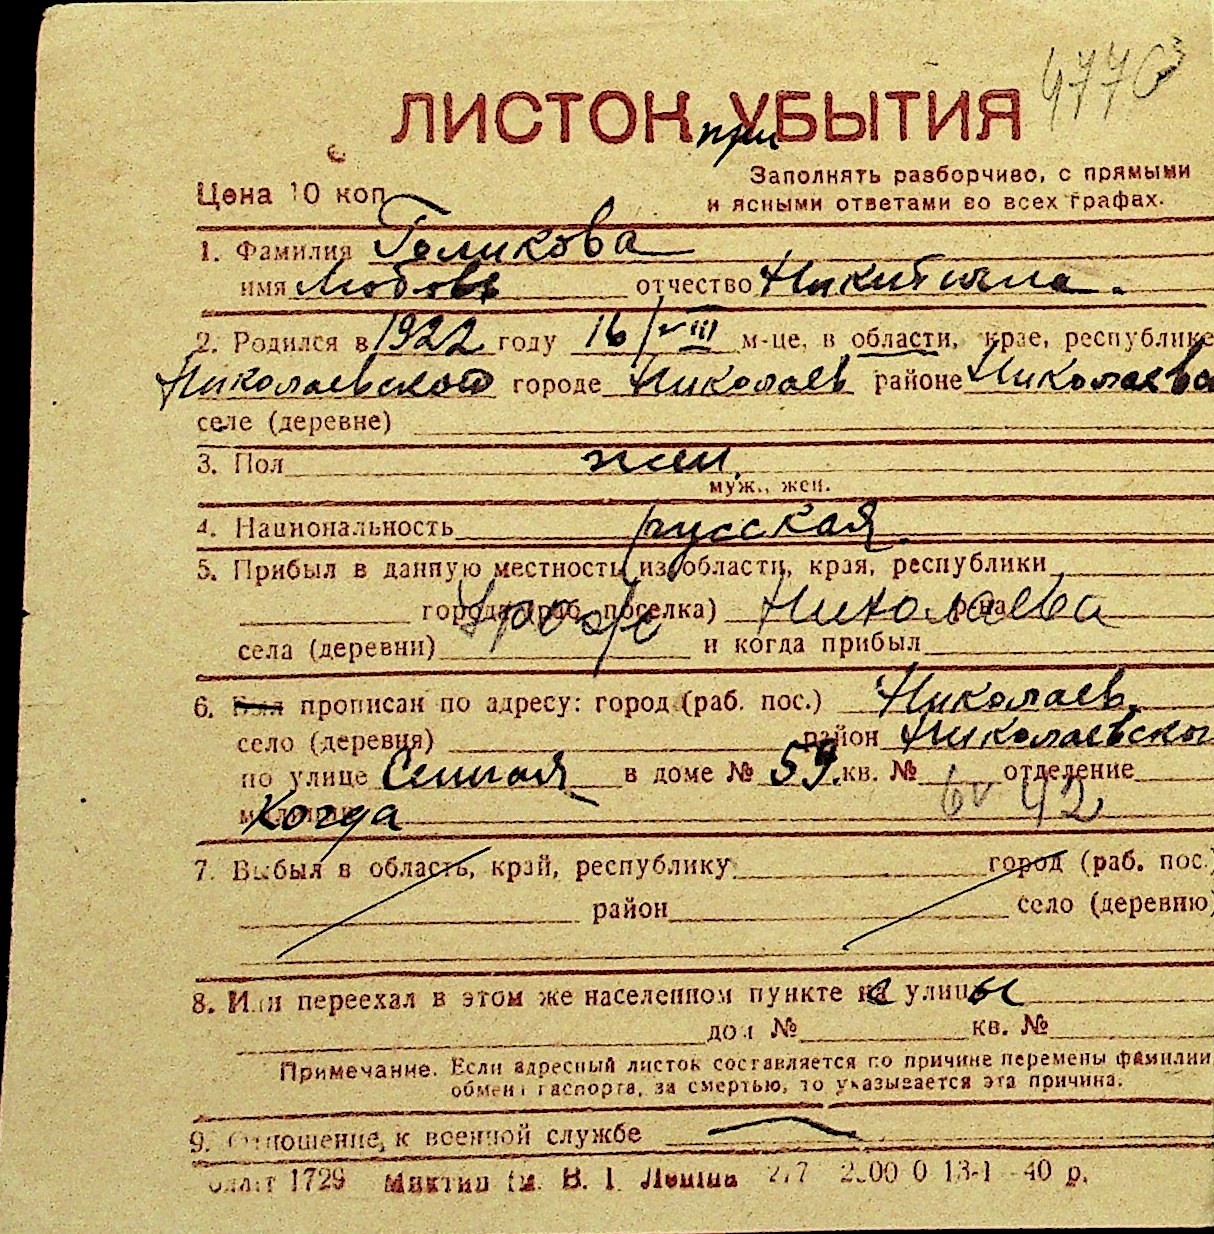 ЛИСТОК УБЫТИЯ
при
Цена 10 коп
Заполнять разборчиво, с прямыми
и ясными ответами во всех графах.
1. Фамилия Голикова
имя Любовь отчество Никитична
2. Родился в 1922 году 16/VIII м-це, в области, крае, республике
Николаевской городе Николаев районе
селе (деревне)
3. Пол жен.
муж., жен.
4. Национальность русская
5. Прибыл в данную местность из области, края, республики
города (раб. поселка) Николаева р-на
села (деревни) и когда прибыл
6. Был прописан по адресу: город (раб. пос.) Николаев
село (деревня) район
по улице Сенная в доме № 59 кв. № отделение
милиции Когда 42
7. Выбыл в область, край, республику город (раб. пос.)
район село (деревню)
8. Или переехал в этом же населенном пункте с улицы
дом № кв. №
Примечание. Если адресный листок составляется по причине перемены фамилии,
обмена паспорта, за смертью, то указывается эта причина.
9. Отношение к военной службе
1729 40 р.